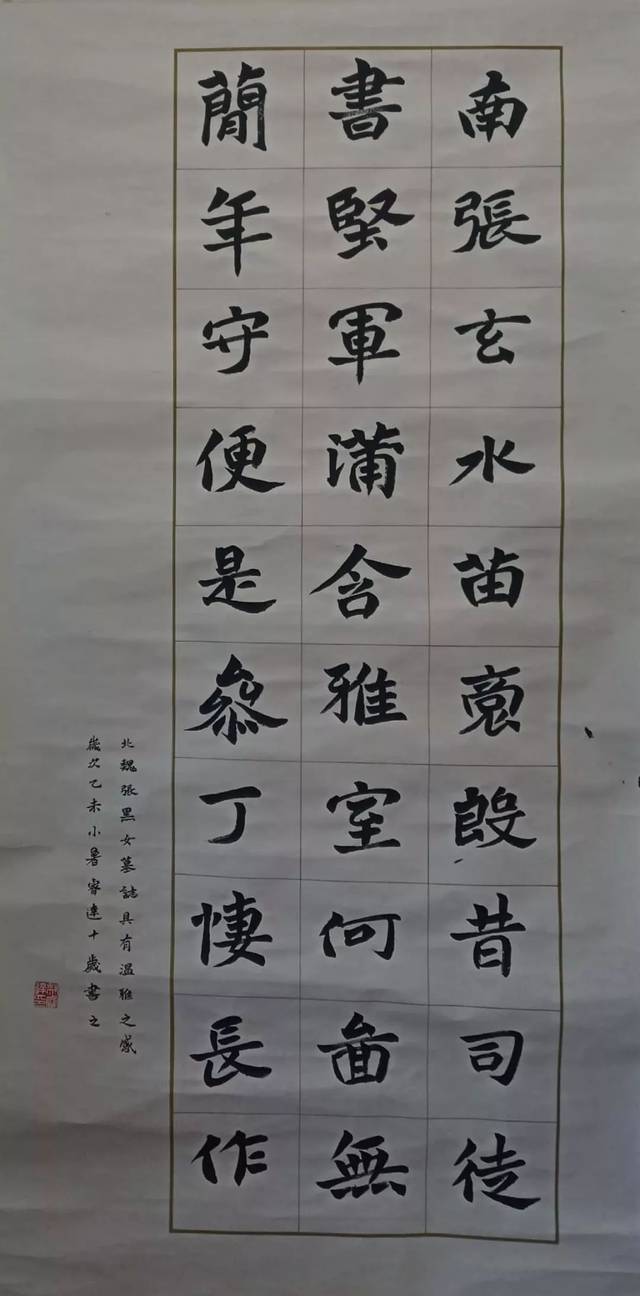 南張玄水苗裔殷昔司徒
書堅軍蒲含雅室何啚無
簡年守便是叅丁悽長作
北魏張黑女墓誌具有温雅之感
歲次乙未小暑睿達十歲書之